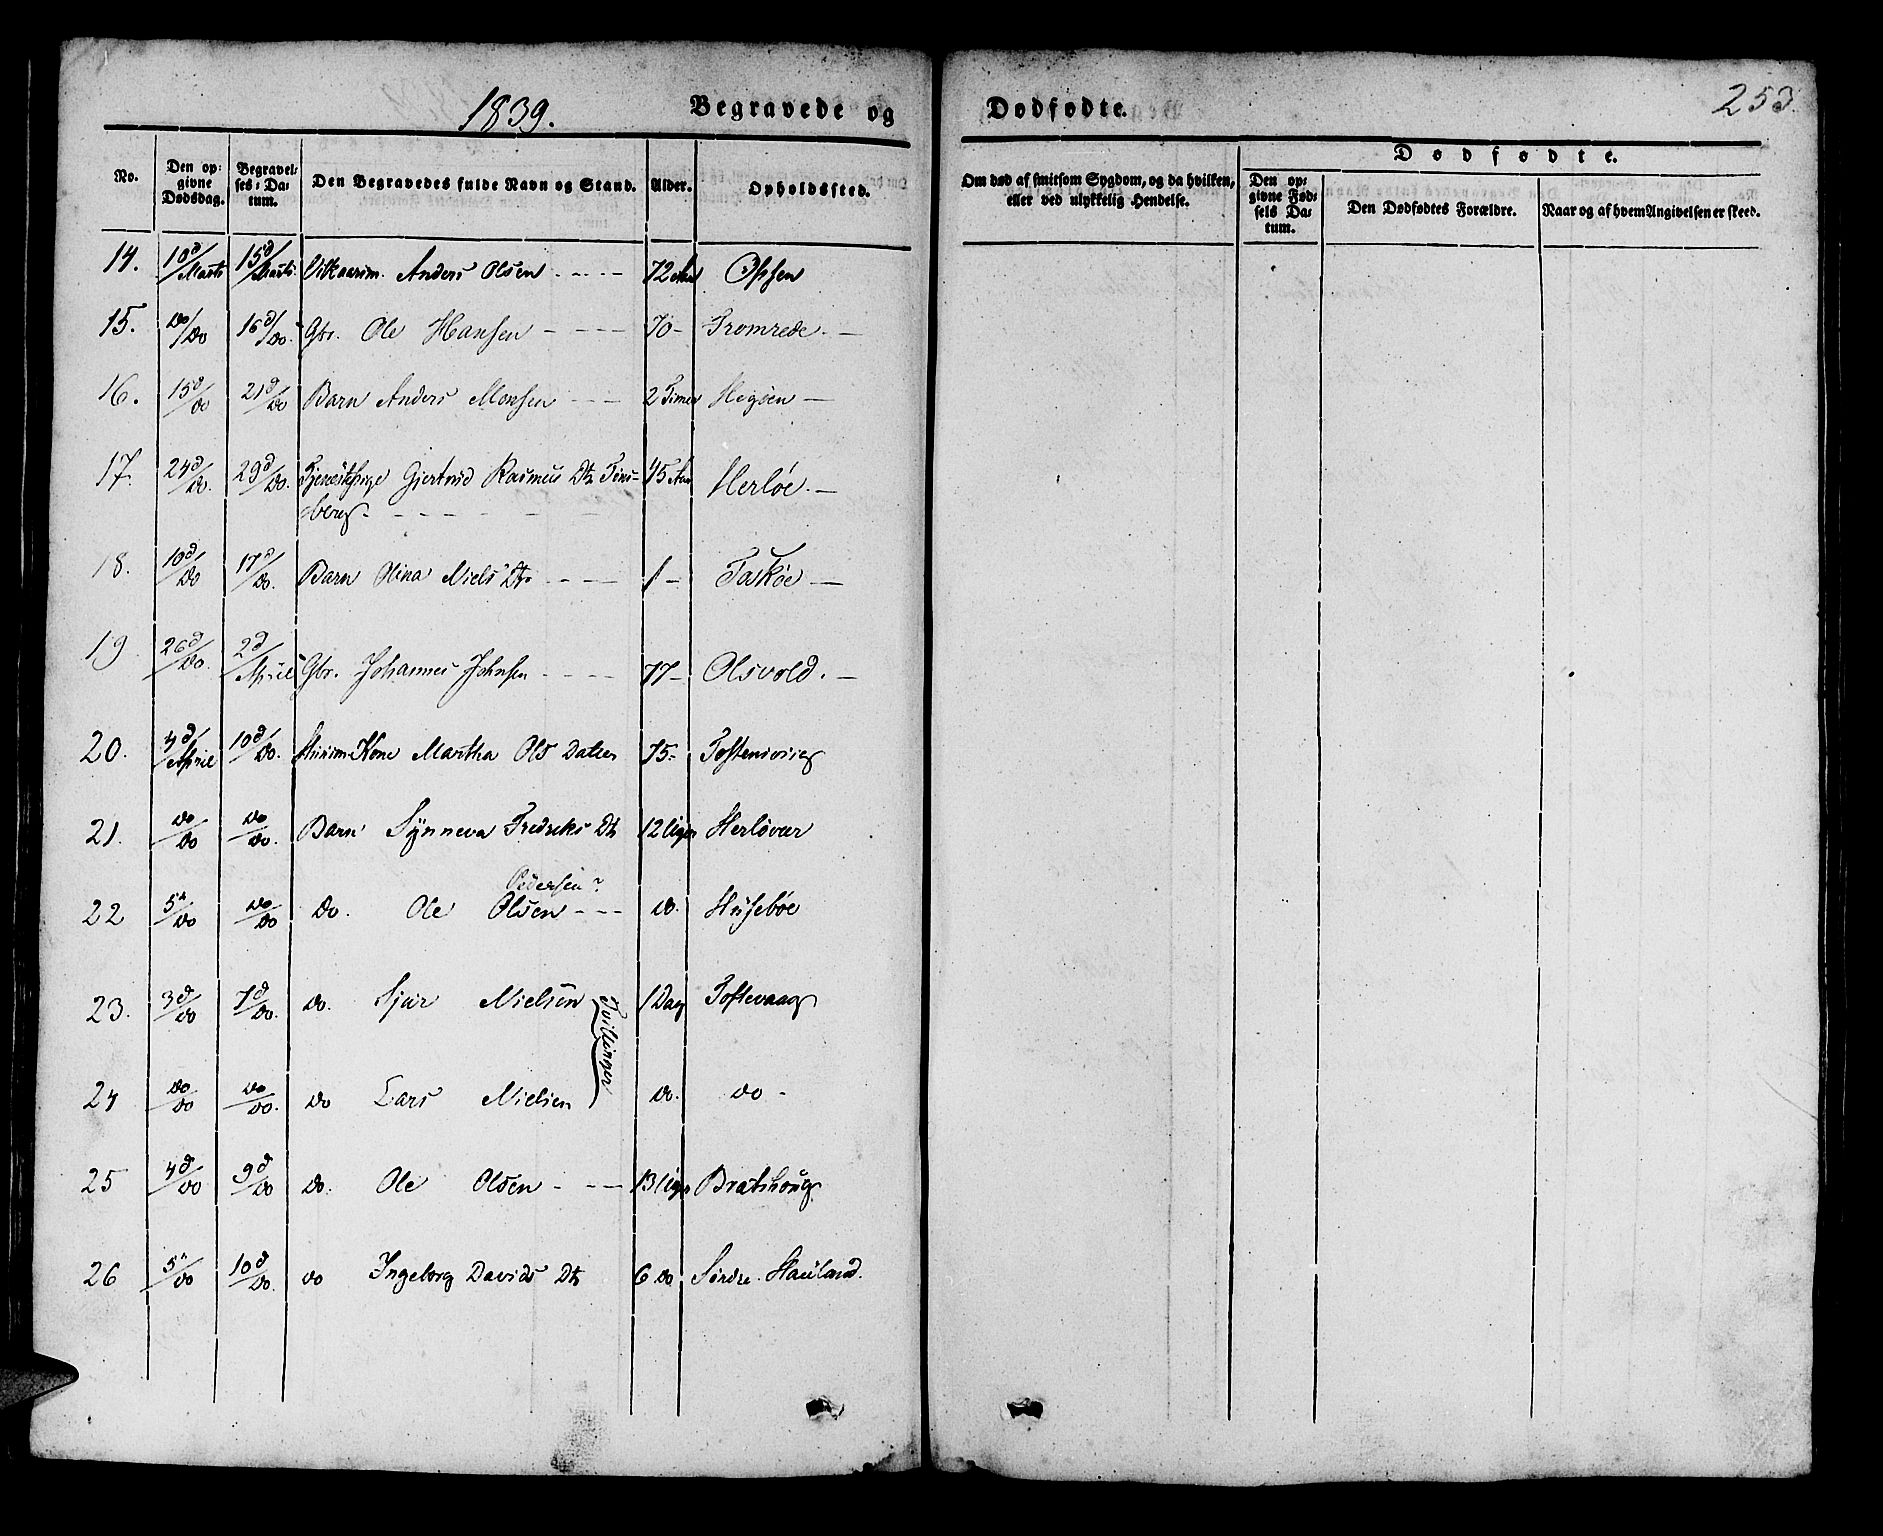 1839. Begravede og Dødfødte. 253.
No. Den opgivne Dødsdag. Begravelses-Datum. Den Begravedes fulde Navn og Stand. Alder. Opholdssted. Om død af smitsom Sygdom, og da hvilken, eller ved ulykkelig Hendelse. Dødfødte. Den opgivne Fødsels Datum. Den Dødfødtes Forældre. Naar og af hvem Angivelsen er skeed.
14. 10d/Marts 15d/Marts Vilkaarsm. Anders Olsen - - - - 72 Aar Opsen
15. Do/Do 16d/Do. Gbr. Ole Hansen - - - - 70 - Fromrede. -
16. 15d/Do 21d/Do Barn Anders Monsen - - - 2 Timer Hegøen -
17. 24d/Do. 29d/Do. Tjenestepige Gjertrud Rasmus Dtr
45 Aar Herløe. -
18. 10d/Do 17d/Do. Barn Olina Niels Dtr - - - 1 - Toskøe -
19. 26d/Do. 2d/April Gbr. Johannes Johnsen - - - - 77 - Olsvold. -
20. 4d/April 10d/Do. Kone Martha Ols Datter 75 -
21. Do/Do Do/Do. Barn Synneva Fredriks Dtr 12 Uger Herløvær
Pedersen?
22 5te/Do Do/Do Do. Ole Olsen - - - Do. Husebøe
23. 3d/Do 7d/Do. Do. Sjur Nielsen 1 Dag Toftevaag
Tvillinger
24 Do/Do Do/Do. Do Lars Nielsen Do. Do -
25 4d/Do 9d/Do Do. Ole Olsen - - - 13 Uger Bratshoug.
26 5te/Do 10d/Do. Do Ingeborg Davids Dtr 6 Do Søndre Hauland.